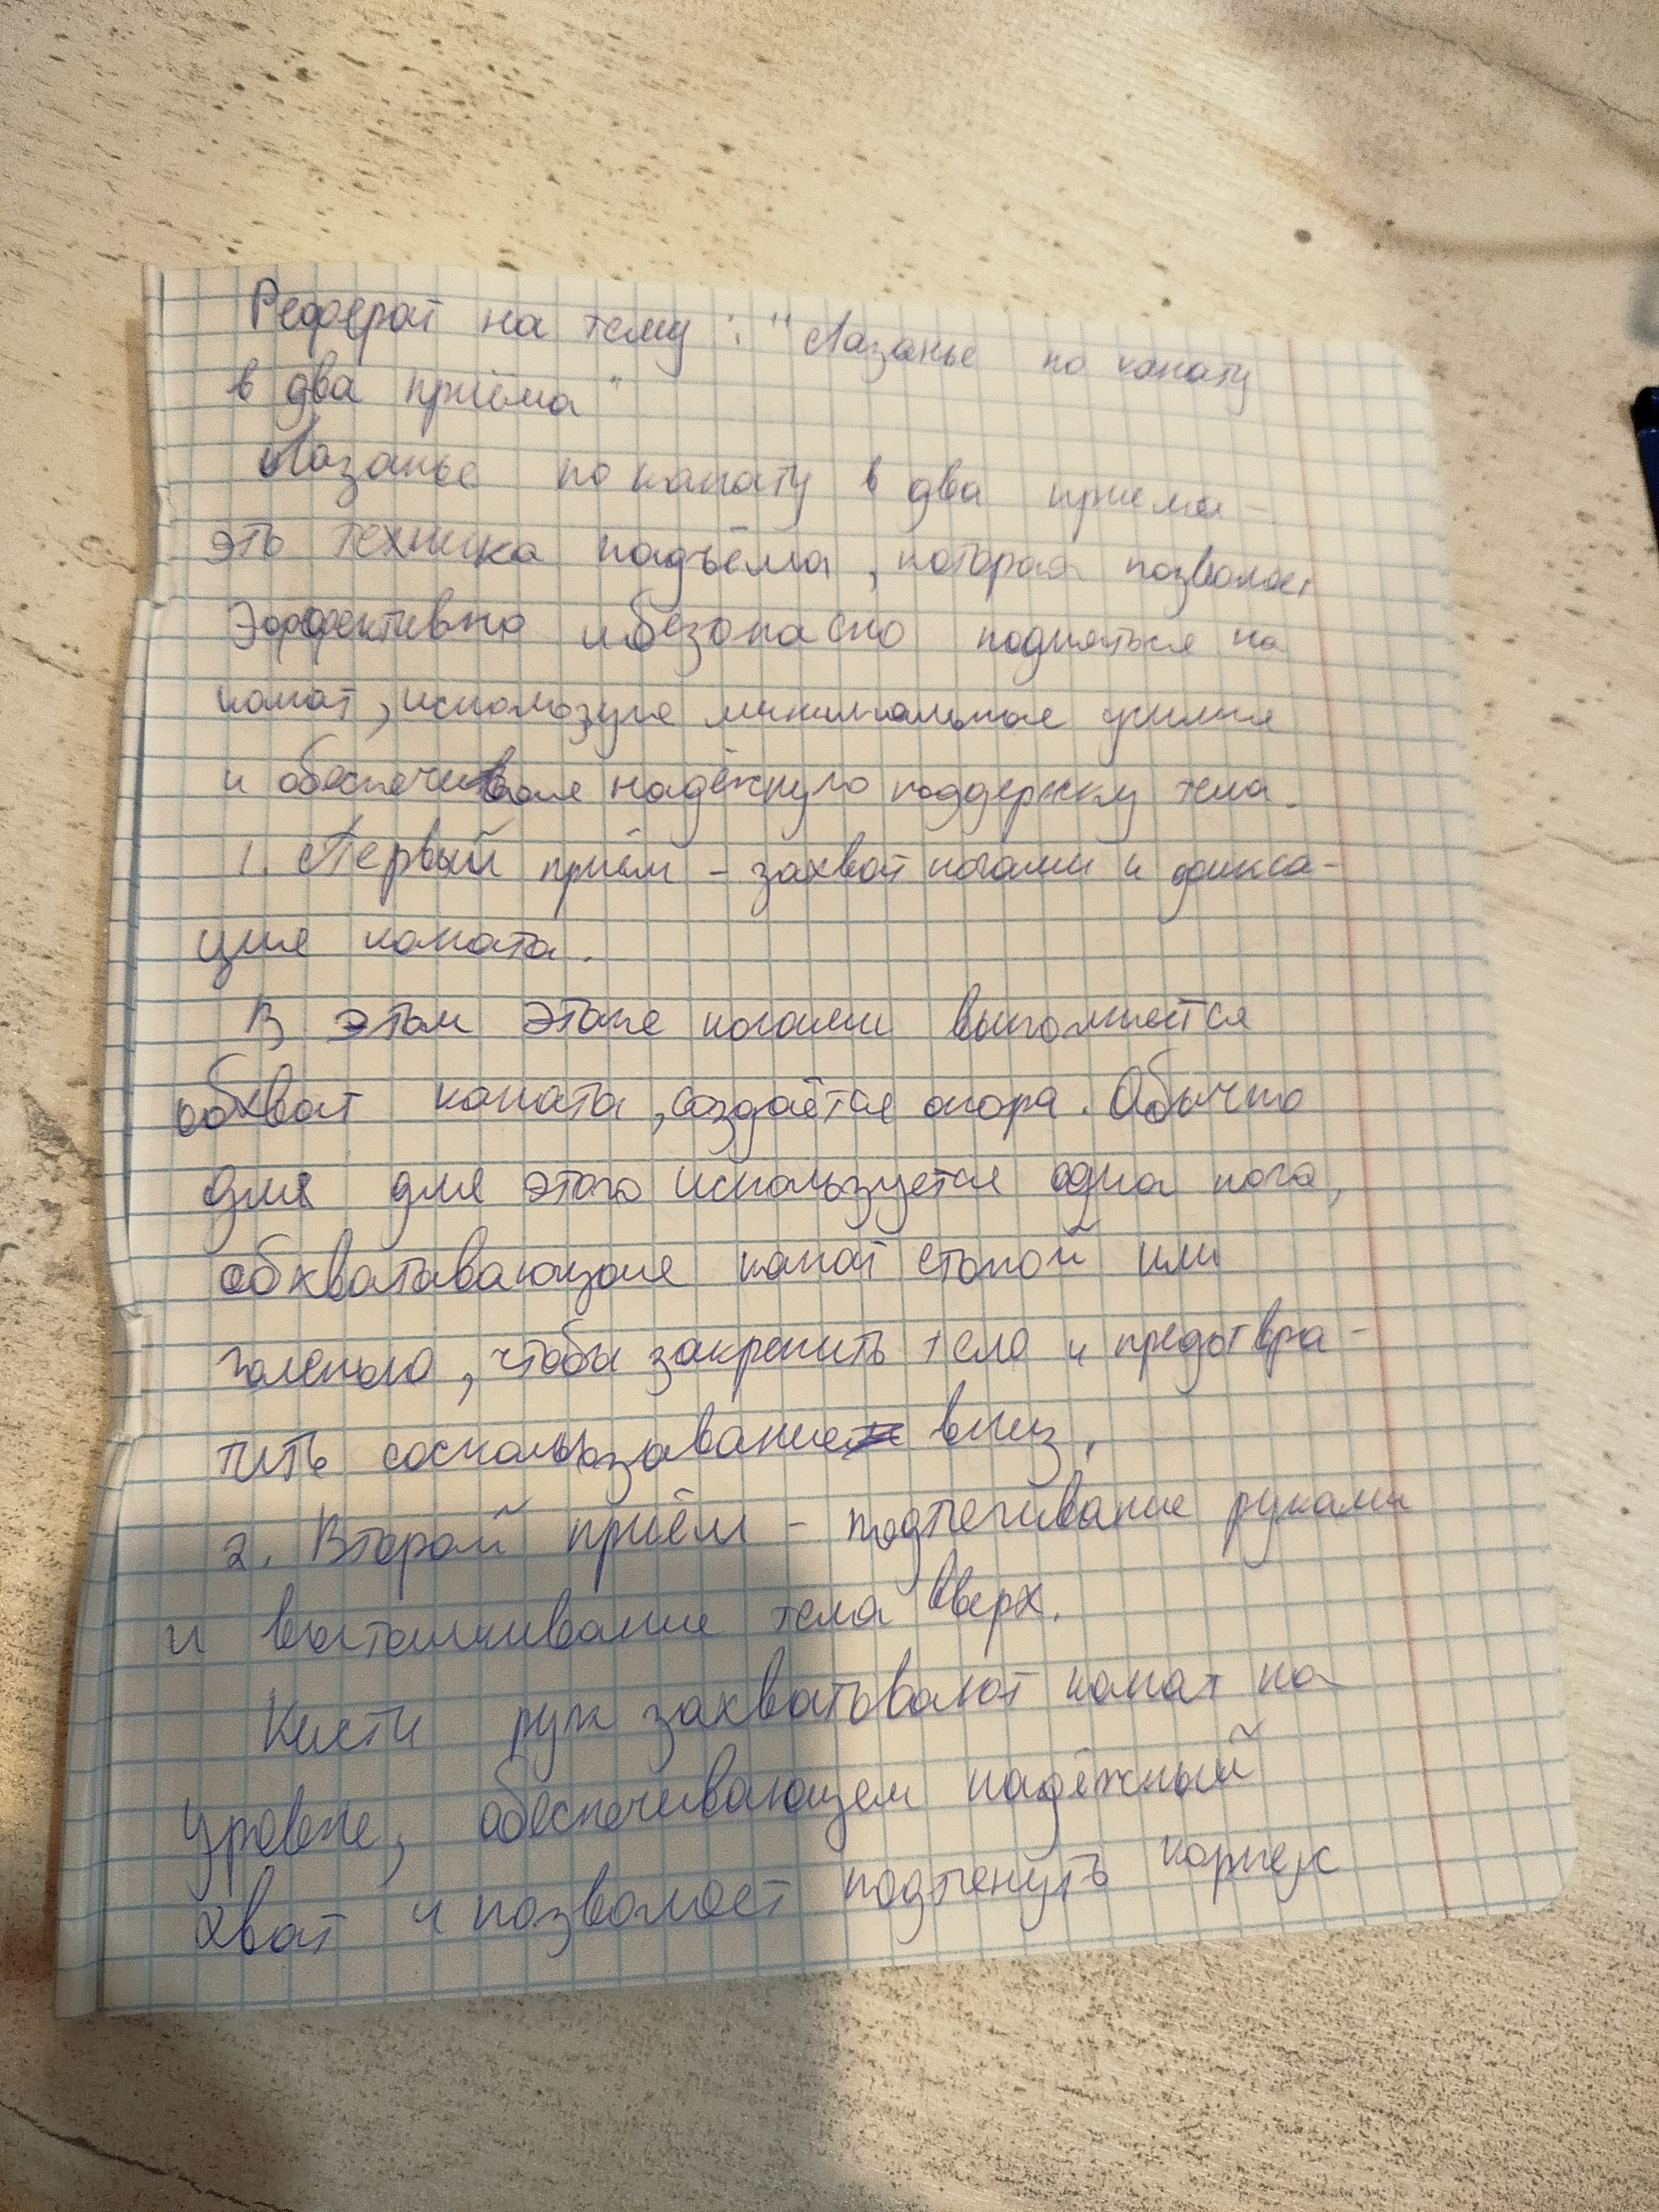 Реферат на тему: "Лазанье по канату
в два приёма"
Лазанье по канату в два приема -
это техника подъёма, которая позволяет
эффективно и безопасно подняться на
канат, используя минимальные усилия
и обеспечивая надёжную поддержку тела.
1. Первый приём - захват ногами и фикса-
ция каната.
В этом этапе ногами выполняется
обхват каната, создаётся опора. Обычно
для для этого используется одна нога,
обхватывающая канат стопой или
голенью, чтобы закрепить тело и предотвра-
тить соскальзывание вниз.
2. Второй приём - подтягивание руками
и выталкивание тела вверх.
Кисти рук захватывают канат на
уровне, обеспечивающем надёжный
хват и позволяет подтянуть корпус